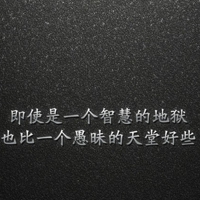 即使是一个智慧的地狱
也比一个愚昧的天堂好些